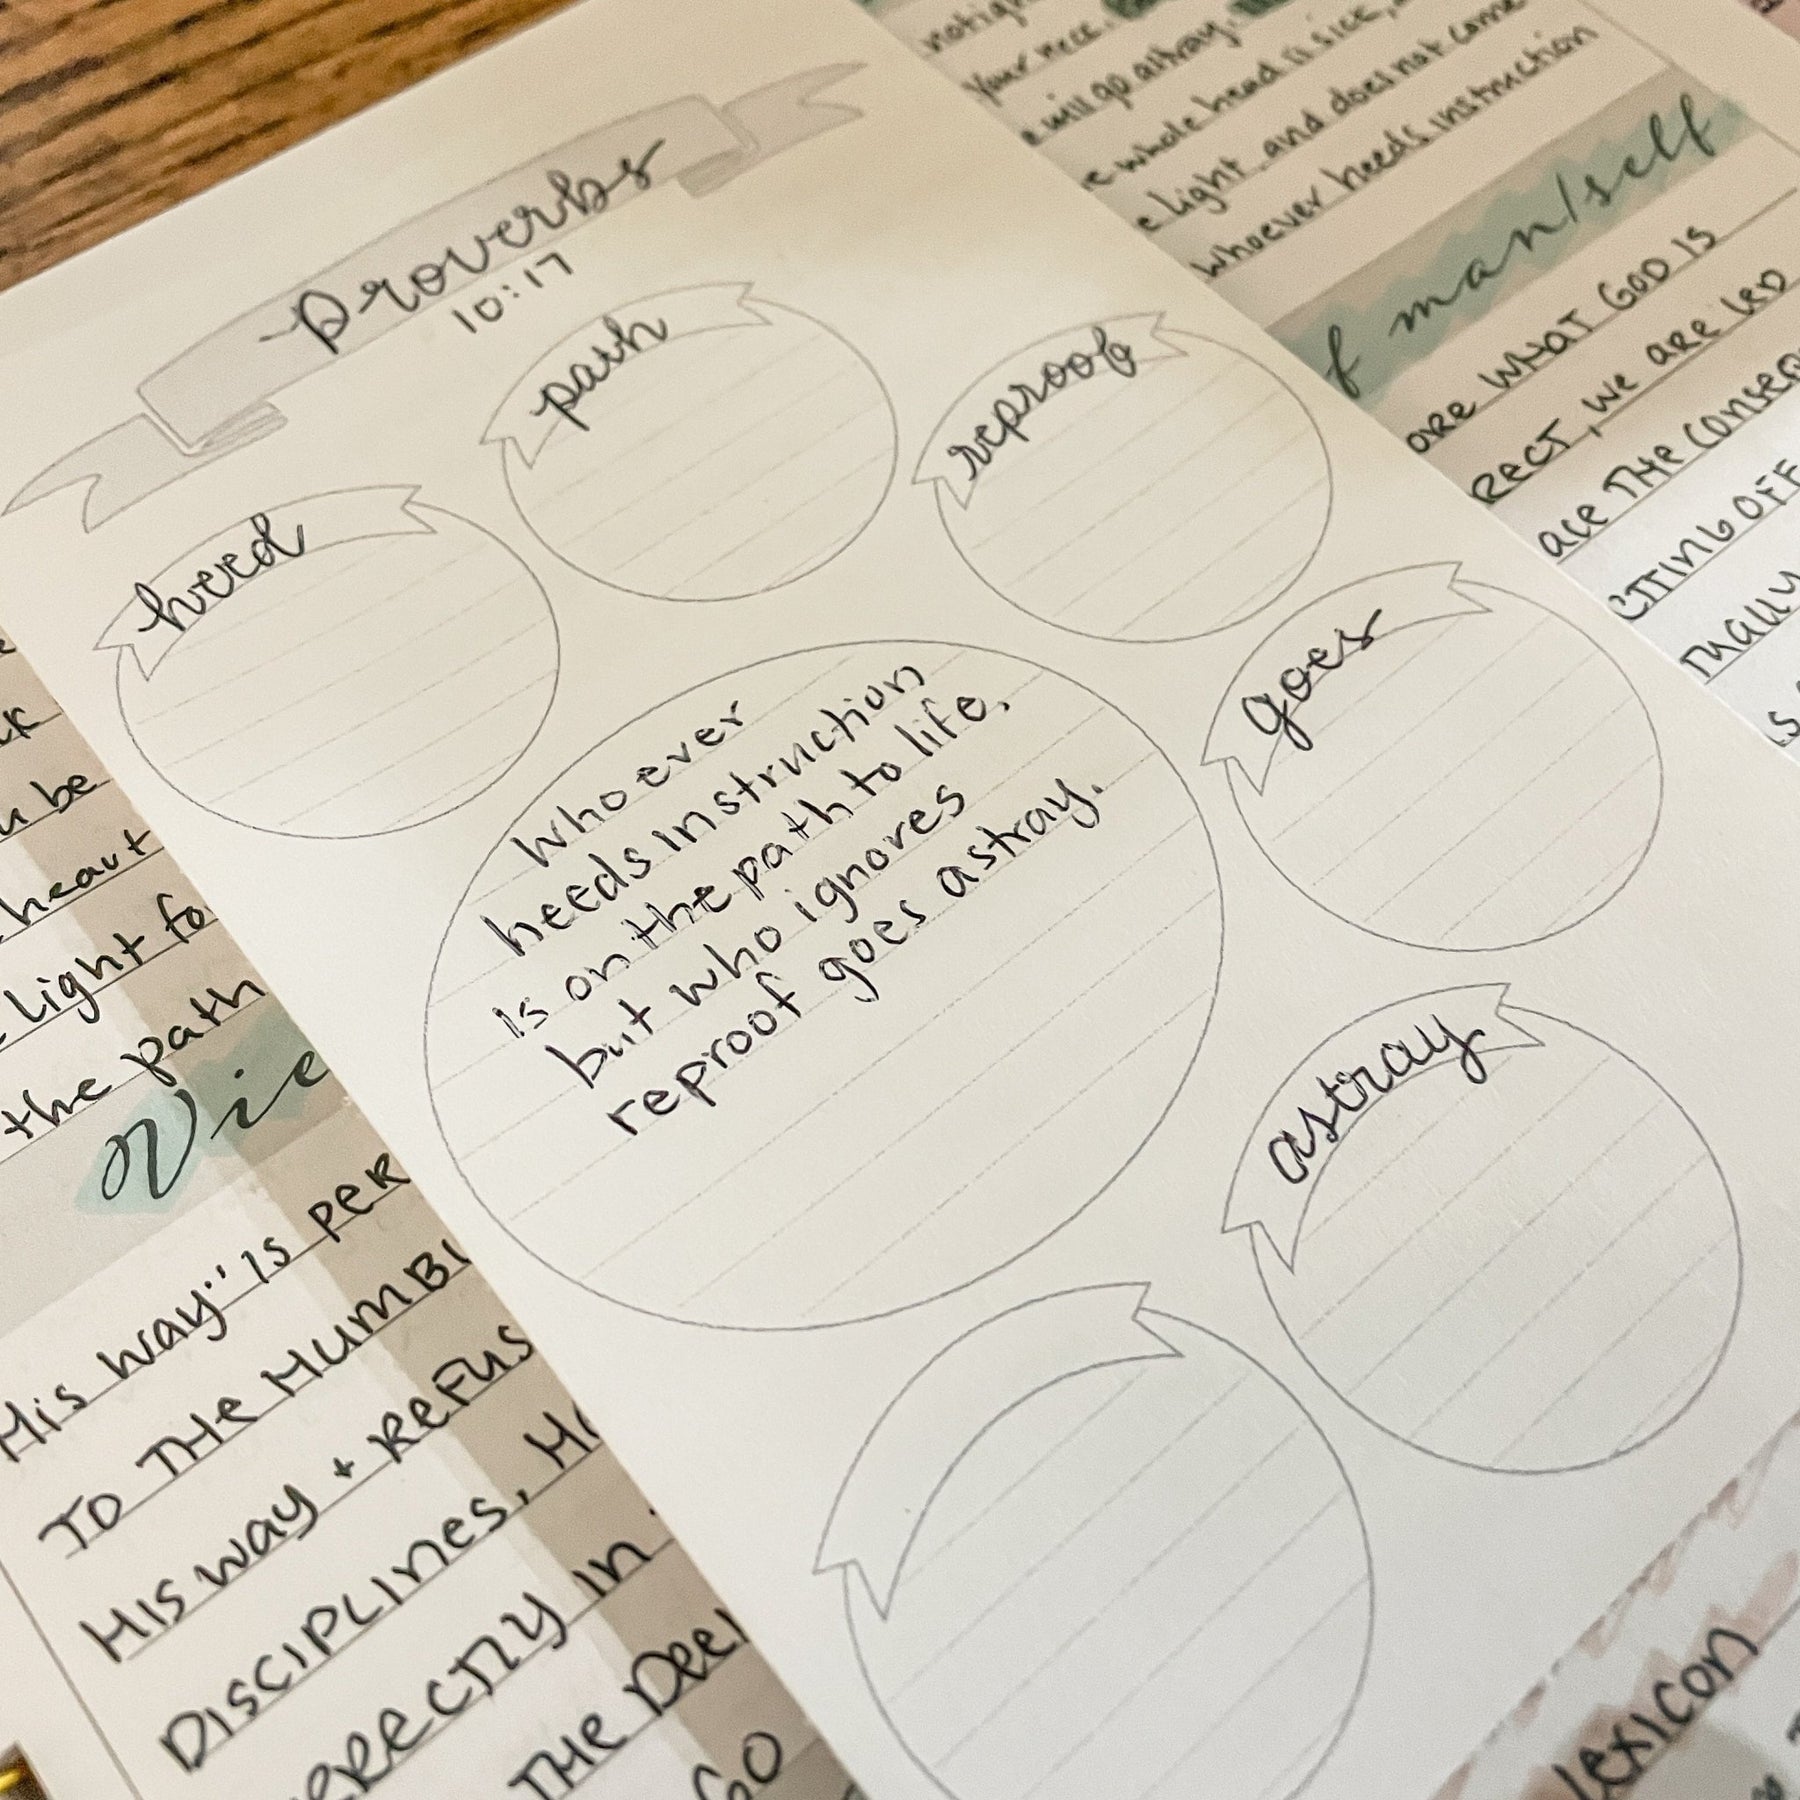 Proverbs
10:17
path
reproof
heed
goes
astray
whoever
heeds instruction
is on the path to life,
but who ignores
reproof goes astray.
your neck.
will go astray.
whole head is sick,
light and does not come
whoever heeds instruction
f man/self
ORE WHAT GOD IS
RECT, WE ARE LED
ACE THE CONSEQ
CTING OFF
be
heart
light fo
the path
Vie
HIS WAY" IS PER
TO THE HUMBL
HIS WAY + REFUS
DISCIPLINES, H
ERECTLY IN
THE DEE
GO
lexicon